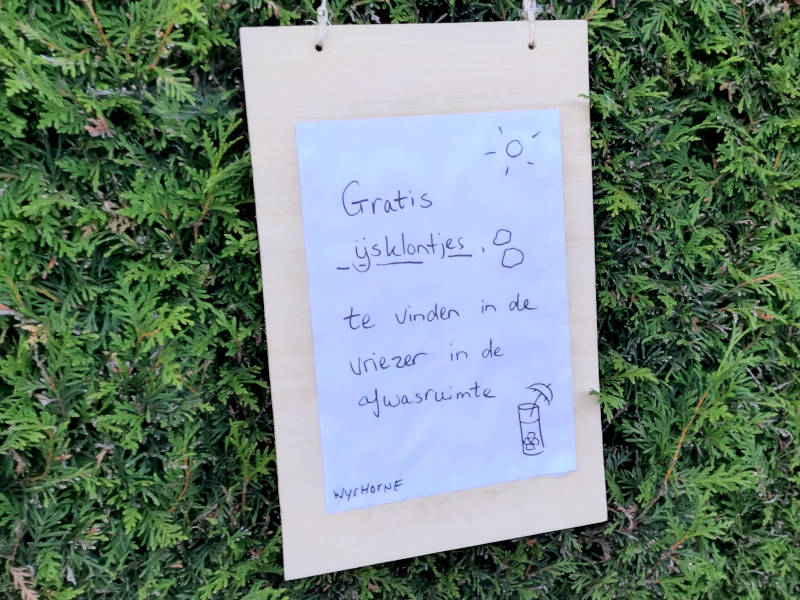 Gratis
ijsklontjes,
te vinden in de
vriezer in de
afwasruimte
WYSHORNE